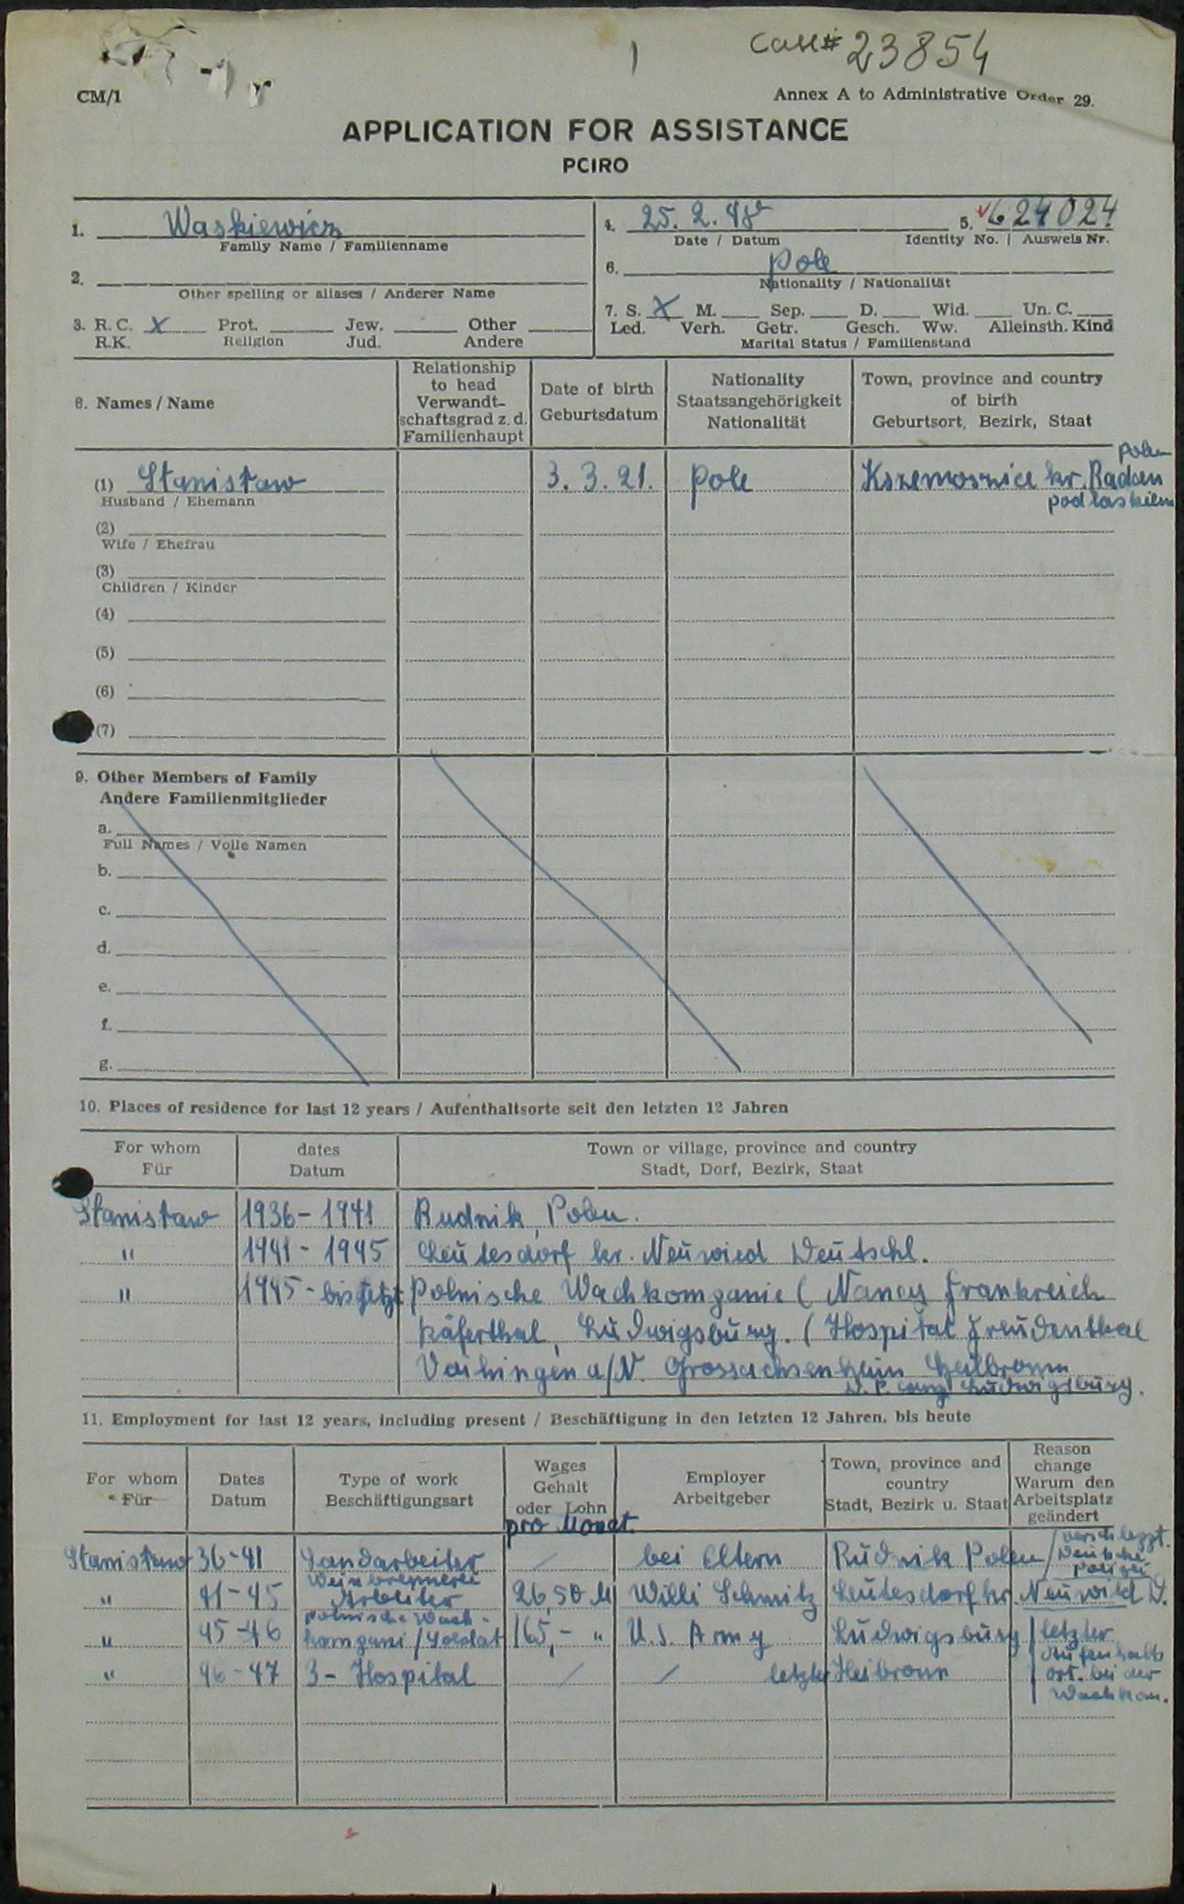 Case# 23854
CM/1
Annex A to Administrative Order 29.
APPLICATION FOR ASSISTANCE
PCIRO
1. Waskiewicz
Family Name / Familienname
2.
Other spelling or aliases / Anderer Name
3. R. C. X Prot. Jew. Other
R.K. Religion Jud. Andere
4. 25. 2. 48 5. 624024
Date / Datum Identity No. | Ausweis Nr.
6. Pole
Nationality / Nationalität
7. S. X M. Sep. D. Wid. Un. C.
Led. Verh. Getr. Gesch. Ww. Alleinsth. Kind
Marital Status / Familienstand
8. Names / Name
Relationship
to head
Verwandt-
schaftsgrad z. d.
Familienhaupt
Date of birth
Geburtsdatum
Nationality
Staatsangehörigkeit
Nationalität
Town, province and country
of birth
Geburtsort, Bezirk, Staat
Polen
(1) Stanisław 3. 3. 21. Pole kr.
podlaskiem
Husband / Ehemann
(2)
Wife / Ehefrau
(3)
Children / Kinder
(4)
(5)
(6)
(7)
9. Other Members of Family
Andere Familienmitglieder
a.
Full Names / Volle Namen
b.
c.
d.
e.
f.
g.
10. Places of residence for last 12 years / Aufenthaltsorte seit den letzten 12 Jahren
For whom
Für
dates
Datum
Town or village, province and country
Stadt, Dorf, Bezirk, Staat
Stanisław 1936 - 1941 Rudnik, Polen.
" 1941 - 1945 Leutesdorf kr. Neuwied Deutschl.
" 1945 - bis jetzt Polnische Wachkompanie ( Nancy Frankreich
Käferthal, Ludwigsburg. ( Hospital Freudenthal
Vaihingen a/N. Grossachsenheim Heilbronn
D.P. camp Ludwigsburg.
11. Employment for last 12 years, including present / Beschäftigung in den letzten 12 Jahren, bis heute
For whom
Für
Dates
Datum
Type of work
Beschäftigungsart
Wages
Gehalt
oder Lohn
pro Monat
Employer
Arbeitgeber
Town, province and
country
Stadt, Bezirk u. Staat
Reason
change
Warum den
Arbeitsplatz
geändert
Stanisław 36-41 Landarbeiter / bei Eltern Rudnik Polen / verschleppt. Deutsche Polizei
" 41-45 Weinbrennerei Arbeiter 26,50 M Willi Schmitz Leutesdorf kr. Neuwied D.
" 45-46 polnische Wach-kompani / Soldat 165,- " U.S. Army Ludwigsburg / letzter Aufenhalts ort. bei der Wachkom.
" 46-47 3 - Hospital / / letzte Heibronn